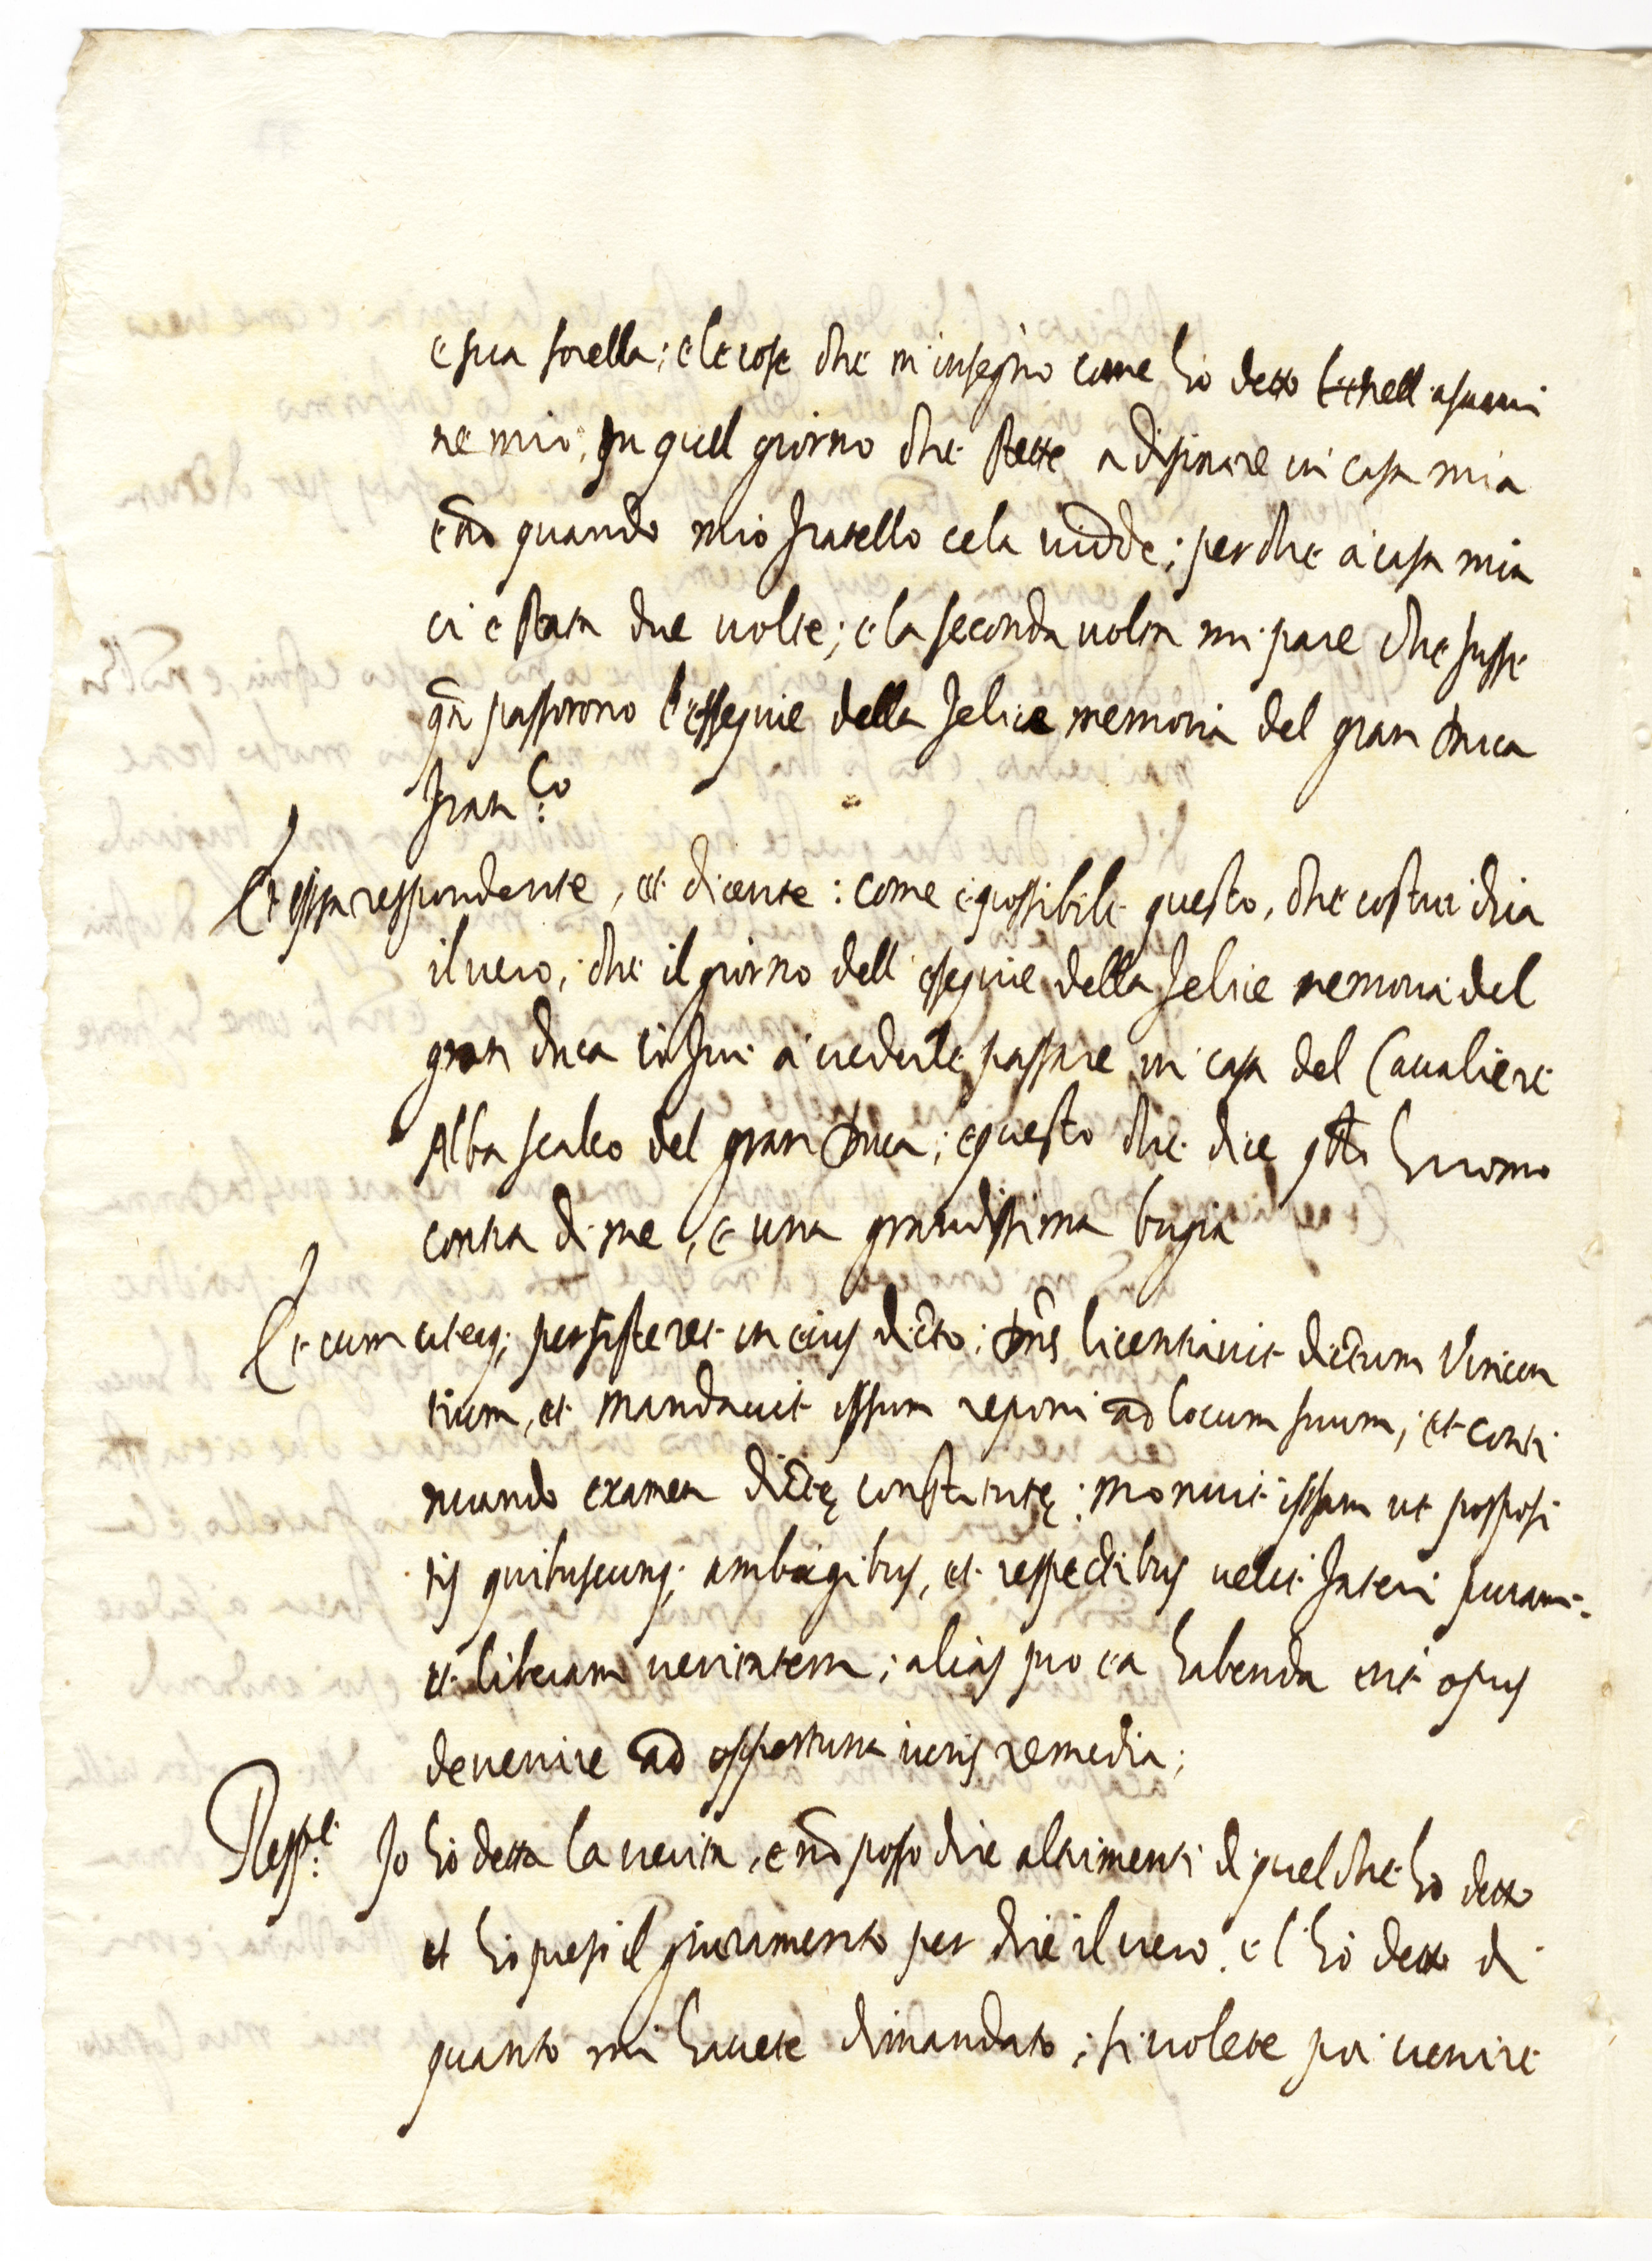 e sua sorella; e le cose che m'insegnò come hò detto nell'esami
ne mio, in quel giorno che stette a disinare in casa mia
e nō quando mio fratello cela vidde; perche a casa mia
ci e stata due volte; e la seconda volta mi pare che fusse
qñ passorono l'esseguie della felice memoria del gran Duca
Fran.co
Et ipsa respondente, et dicente: come è possibile questo, che costui dica
il vero, che il giorno dell'esequie della felice memoria del
gran Duca io fui a vederle passare in casa del Cavaliere
Alba scalco del gran Duca; e questo che dice qsto huomo
contra di me, e una grandissima bugia
Et cum uterq; persisteret in eius dicto; Dns licentiavit dictum Vincen
tium, et mandavit ipsum reponi ad locum suum, et conti
nuando examen dictę constitutę; monuit ipsam ut posposi
tis quibuscunq; ambagibus, et respectibus velit fateri puram
et liberam veritatem; alias pro ea habenda erit opus
devenire ad opportuna iuris remedia;
Resp.t Io hò detta la verita, e nō posso dire altrimenti di quel che hò detto
et hò preso il giuramento per dire il vero, e l'hò detto di
quanto mi havete dimandato; si volete poi venire